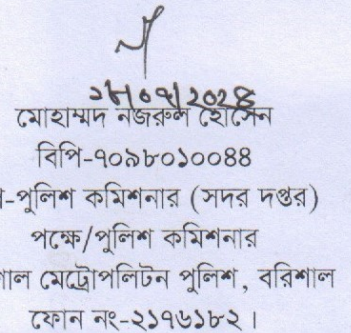 মোহাম্মদ নজরুল হোসেন
বিপি-৭০৯৮০১০০৪৪
-পুলিশ কমিশনার (সদর দপ্তর)
পক্ষে/পুলিশ কমিশনার
াল মেট্রোপলিটন পুলিশ, বরিশাল
ফোন নং-২১৭৬১৮২।